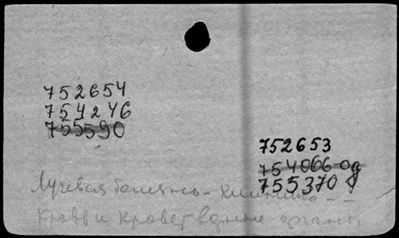 752654
754246
755590
752653
754066-од
755370 д
Лучевая болезнь - клиника -
Кровь и кроветворные органы